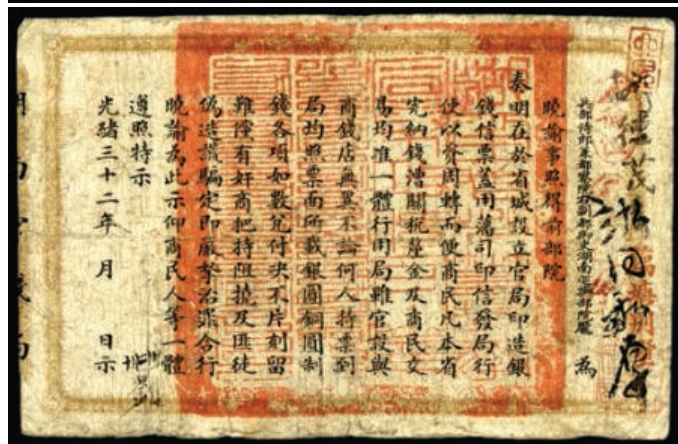 兵部侍郎兼都察院右副都御史湖南巡撫部院龐 為
曉諭事照得前部院
奏明在於省城設立官局印造銀
錢信票蓋用藩司印信發局行
使以資周轉而便商民凡本省
完納錢漕關稅釐金及商民交
易均准一體行用局雖官設與
商錢店無異不論何人持票到
局均照票面所載銀圓銅圓制
錢各項如數兌付決不片刻留
難僅有奸商把持阻撓及匪徒
偽造誆騙定即嚴拏治罪合行
曉諭為此示仰商民人等一體
遵照特示
光緒三十二年 月 日示